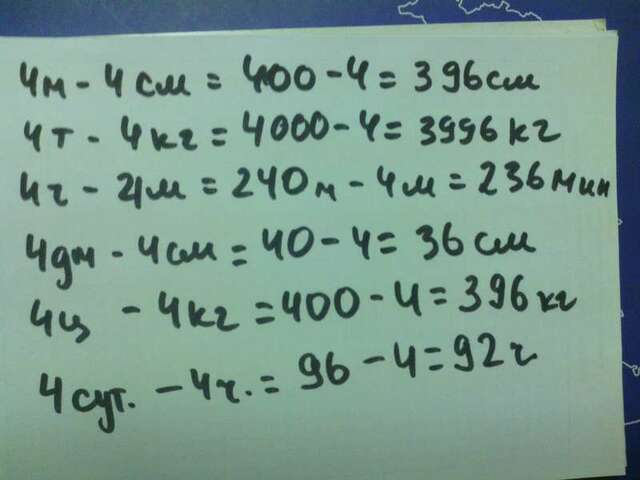 4м - 4см = 400 - 4 = 396см
4т - 4кг = 4000 - 4 = 3996кг
4ч - 4м = 240м - 4м = 236мин
4дм - 4см = 40 - 4 = 36см
4ц - 4кг = 400 - 4 = 396кг
4сут. - 4ч. = 96 - 4 = 92ч